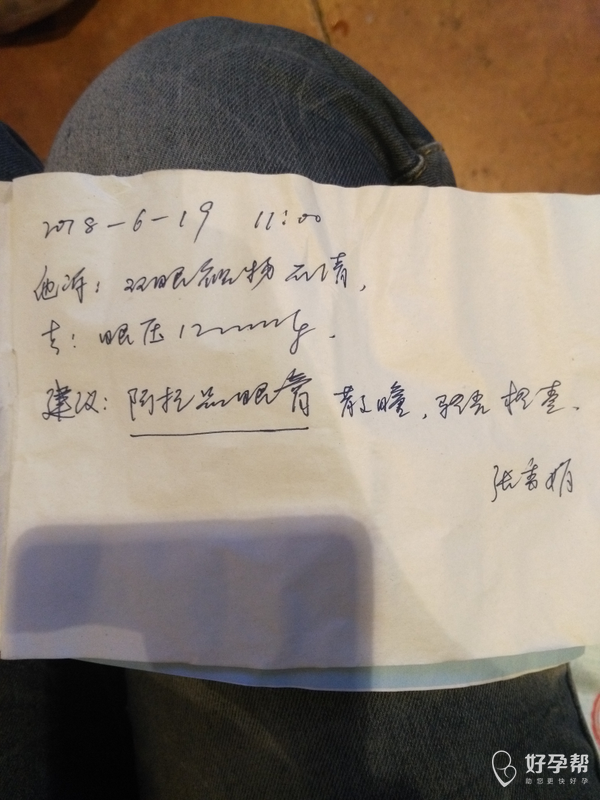 2018-6-19 11:00
他诉：双眼视物不清，
去：眼压12mmHg.
建议：阿托品眼膏 散瞳，验光检查.
张秀娟
好孕帮
助您更快好孕